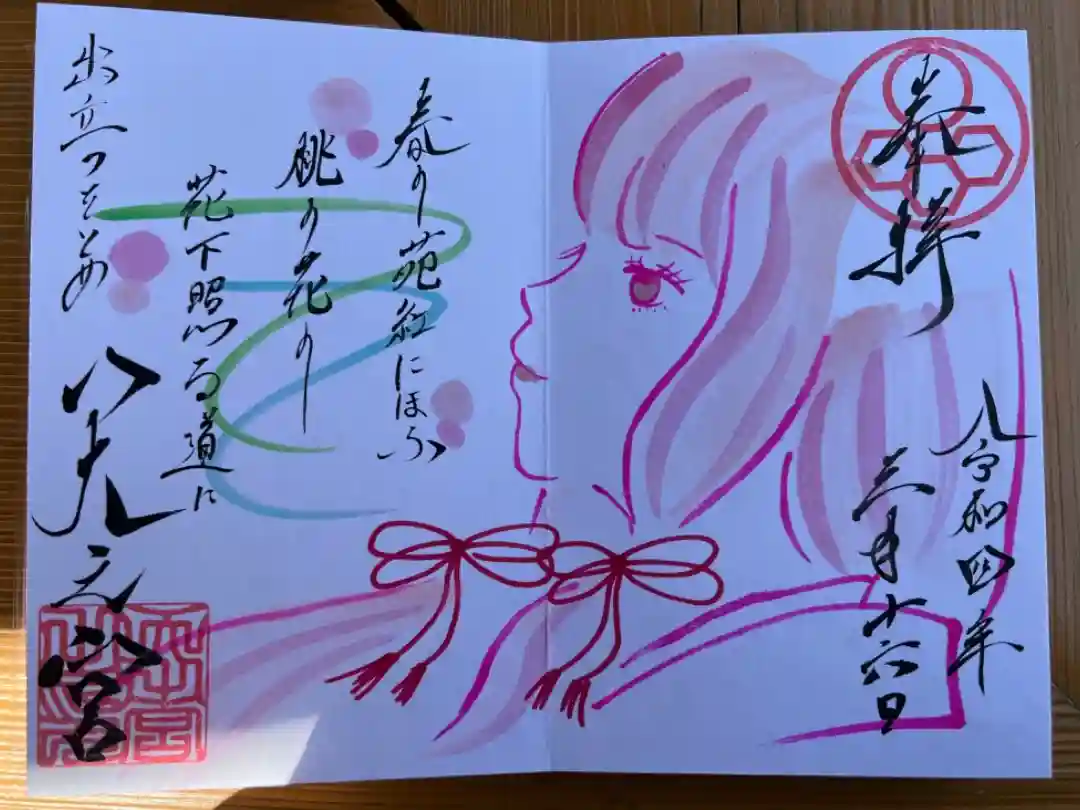 奉拝
令和四年
三月十六日
春の苑紅にほふ
桃の花の
花下照る道に
出立つをとめ
八大之宮